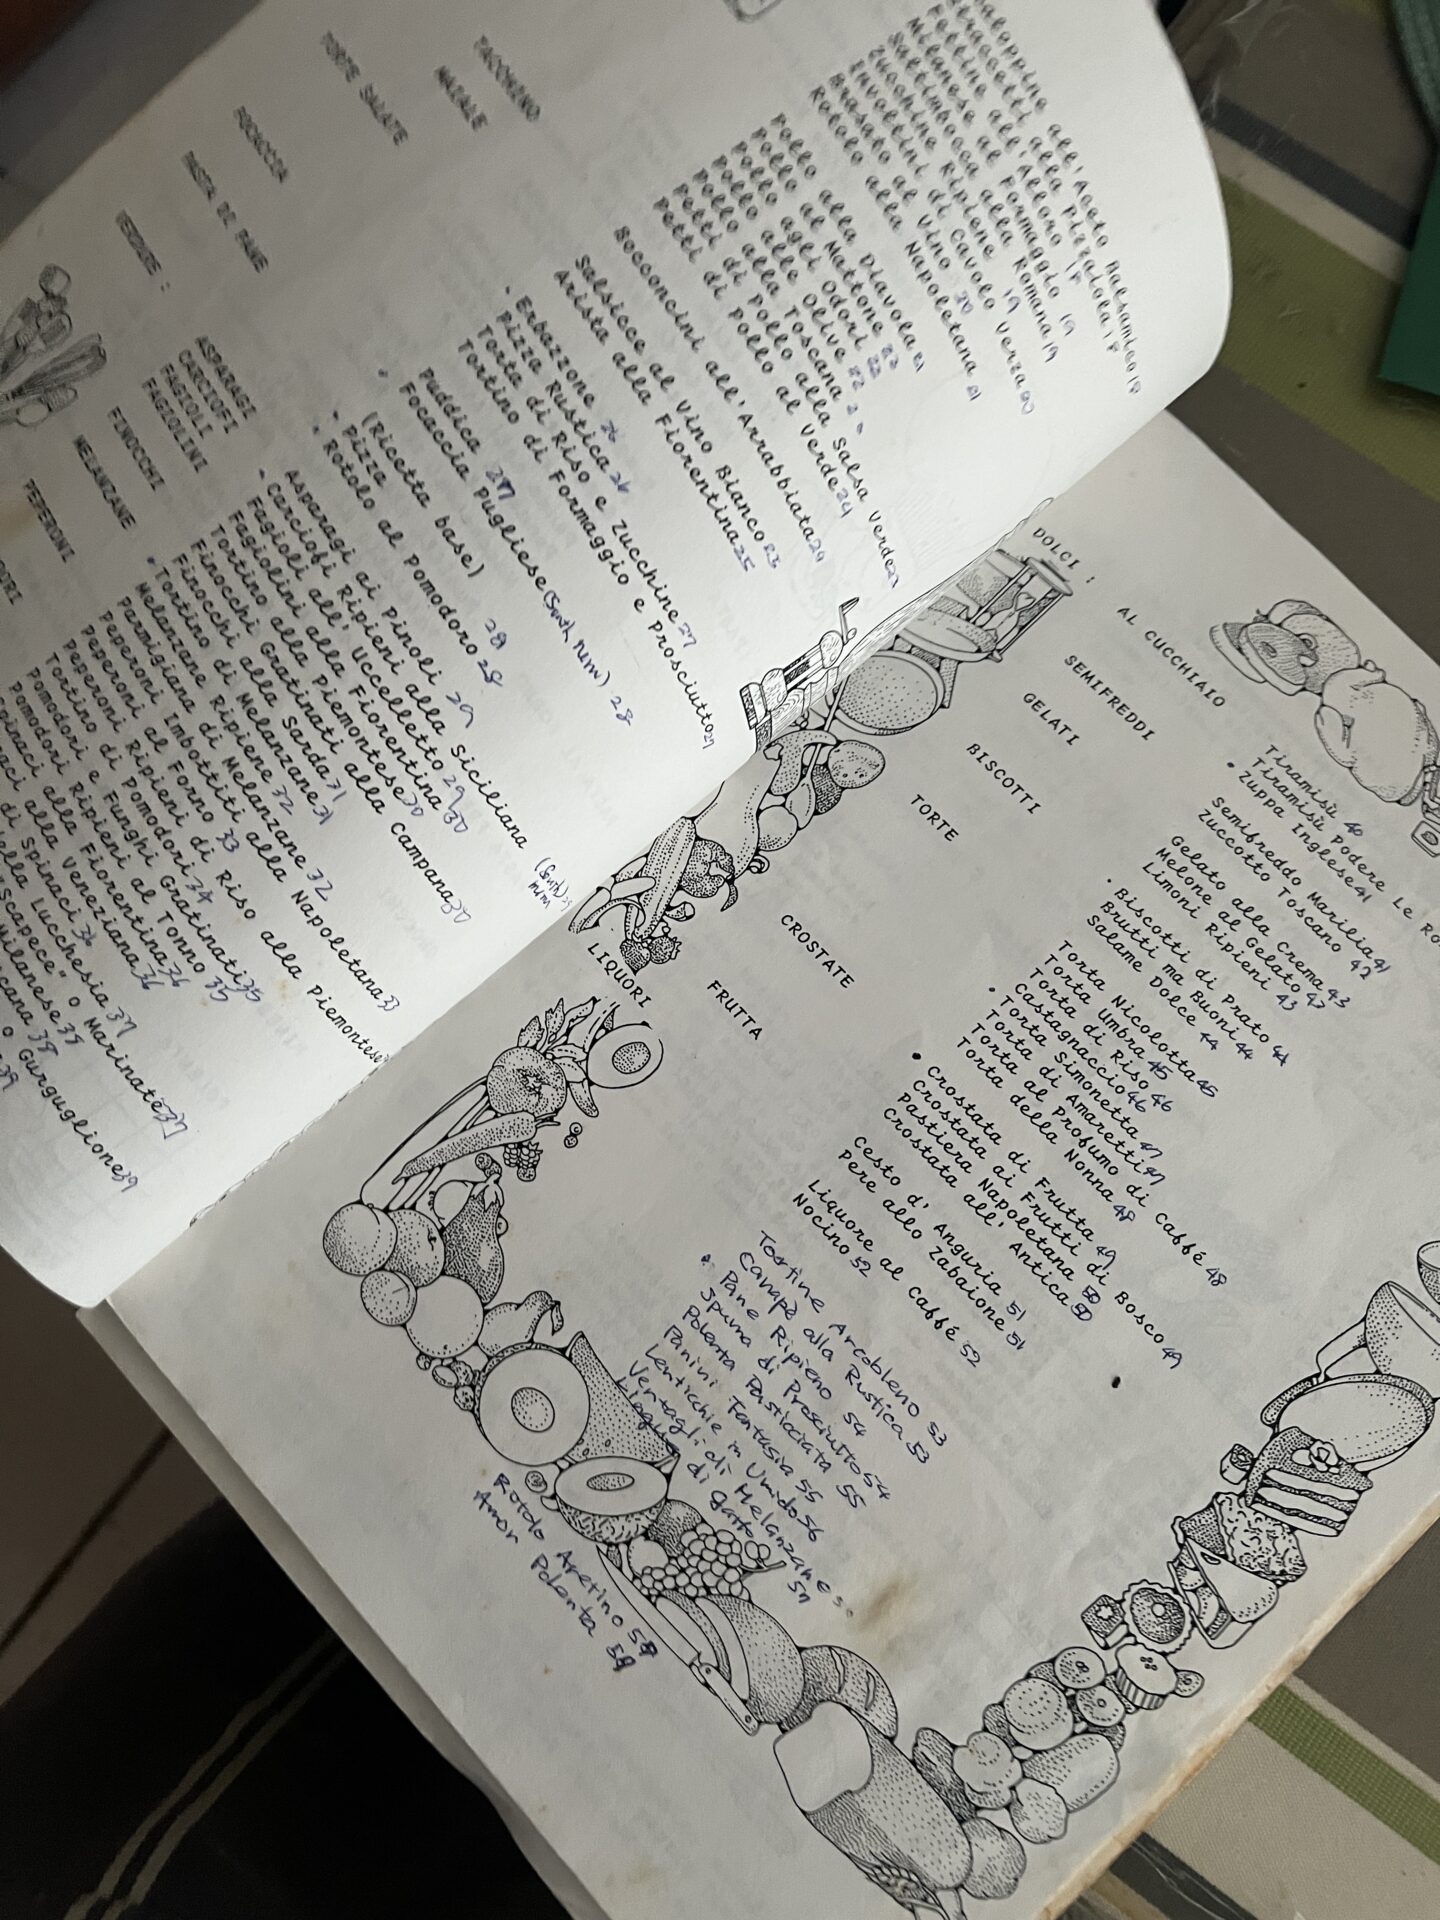 all'Aceto Balsamico 18
alla Pizzaiola 18
all'Alloro
Saltimbocca alla Romana 19
Zucchine Ripiene
Involtini di Cavolo Verza 20
Brasato al Vino 20
Rotolo alla Napoletana 21
Pollo alla Diavola 21
Pollo al Mattone
Pollo agli Odori
Pollo alle Olive 22
Pollo alla Toscana
Petti di Pollo alla Salsa Verde 23
Petti di Pollo al Verde 24
TACCHINO
Bocconcini all'Arrabbiata 24
MAIALE
Salsicce al Vino Bianco 23
Arista alla Fiorentina 25
TORTE SALATE
• Erbazzone 26
Pizza Rustica 26
Torta di Riso e Zucchine 27
Tortino di Formaggio e Prosciutto 27
FOCACCIA
Puddica 27
Focaccia Pugliese 28
PASTA DI PANE
(Ricetta base)
• Pizza 28
• Rotolo al Pomodoro 28
VERDURE :
ASPARAGI
Asparagi ai Pinoli 29
CARCIOFI
• Carciofi Ripieni alla Siciliana
FAGIOLI
Fagioli all'Uccelletto 29
FAGIOLINI
Fagiolini alla Fiorentina 30
Tortino alla Piemontese 30
FINOCCHI
Finocchi Gratinati alla Campana 30
Finocchi alla Sarda 31
MELANZANE
• Tortino di Melanzane 31
Melanzane Ripiene 32
Parmigiana di Melanzane 32
PEPERONI
Peperoni Imbottiti alla Napoletana 33
Peperoni al Forno 33
Peperoni Ripieni di Riso alla Piemontese
Tortino di Pomodori 34
Pomodori e Funghi Gratinati 35
Pomodori Ripieni al Tonno 35
alla Fiorentina 36
alla Veneziana 36
di Spinaci 36
della Lucchesia 37
"Scapece" o Marinate 37
Milanese 38
38
o Gurguglione 39
DOLCI :
AL CUCCHIAIO
Tiramisù 40
Tiramisù Podere Le
• Zuppa Inglese 41
SEMIFREDDI
Semifreddo Marilia 41
Zuccotto Toscano 42
GELATI
Gelato alla Crema 43
Melone al Gelato 43
Limoni Ripieni 43
BISCOTTI
• Biscotti di Prato 44
Brutti ma Buoni 44
Salame Dolce 44
TORTE
Torta Nicolotta 45
Torta Umbra 45
Torta di Riso 46
Castagnaccio 46
• Torta Simonetta 47
Torta di Amaretti 47
Torta al Profumo di Caffé 48
Torta della Nonna 48
CROSTATE
• Crostata di Frutta 49
Crostata ai Frutti di Bosco 49
Pastiera Napoletana 50
Crostata all'Antica 50
FRUTTA
Cesto d'Anguria 51
Pere allo Zabaione 51
LIQUORI
Liquore al Caffé 52
Nocino 52
Tortine Arcobleno 53
Canapè alla Rustica 53
• Pane Ripieno 54
Spuma di Prosciutto 54
Polenta Pasticciata 55
Panini Fantasia 55
Lenticchie in Umido 56
Ventagli di Melanzane
Lingue di gatto 57
Rotolo Aretino 58
Amor Polenta 59